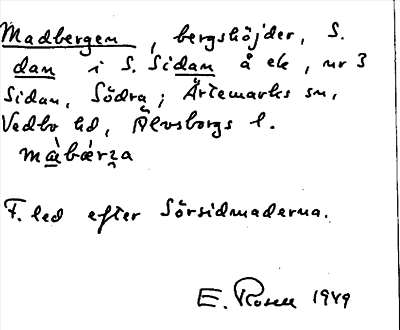 Madbergen, bergshöjder, S.
dan i S. Sidan å ek, nr 3
Sidan, Södra; Ärtemarks sn,
Vedbo hd, Älvsborgs l.
màbǽrza
F. led efter Sörsidmaderna.
E. Rosell 1949